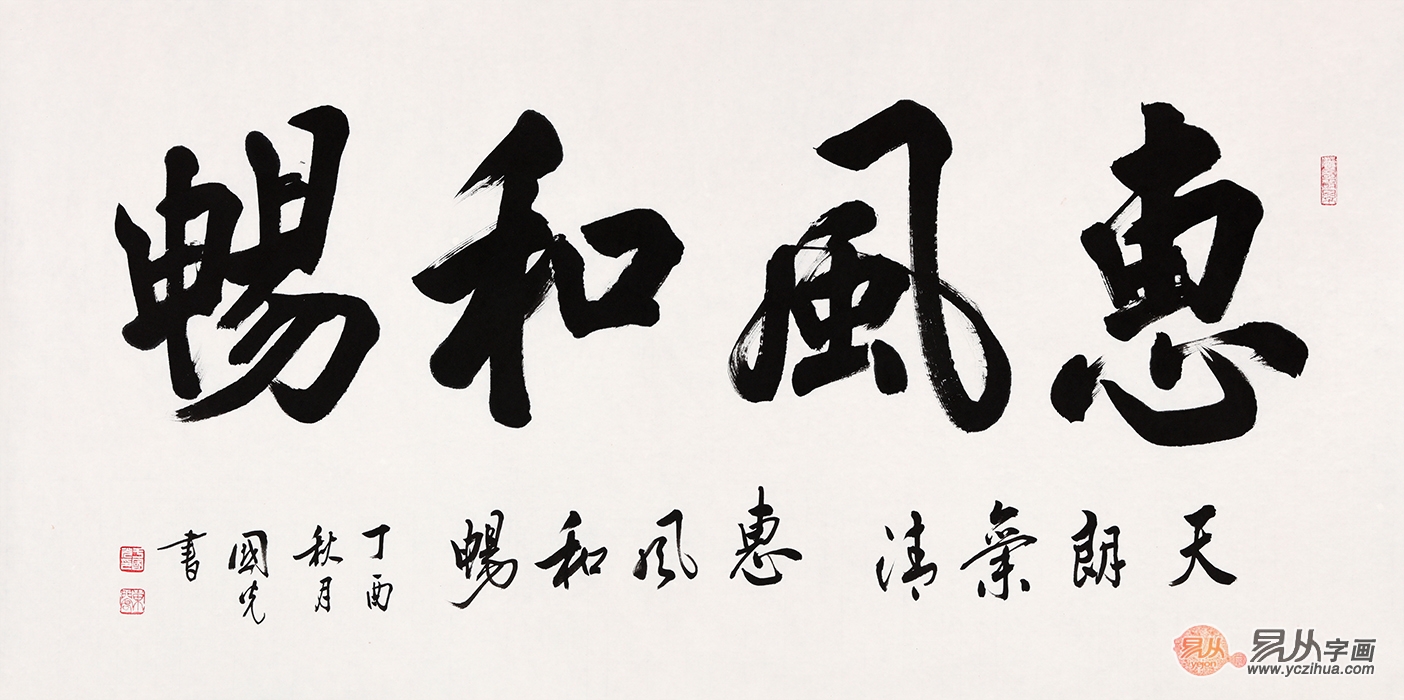 惠風和暢
天朗氣清 惠風和暢
丁酉
秋月
國光
書
易从
yejon
易从字画
www.yczihua.com